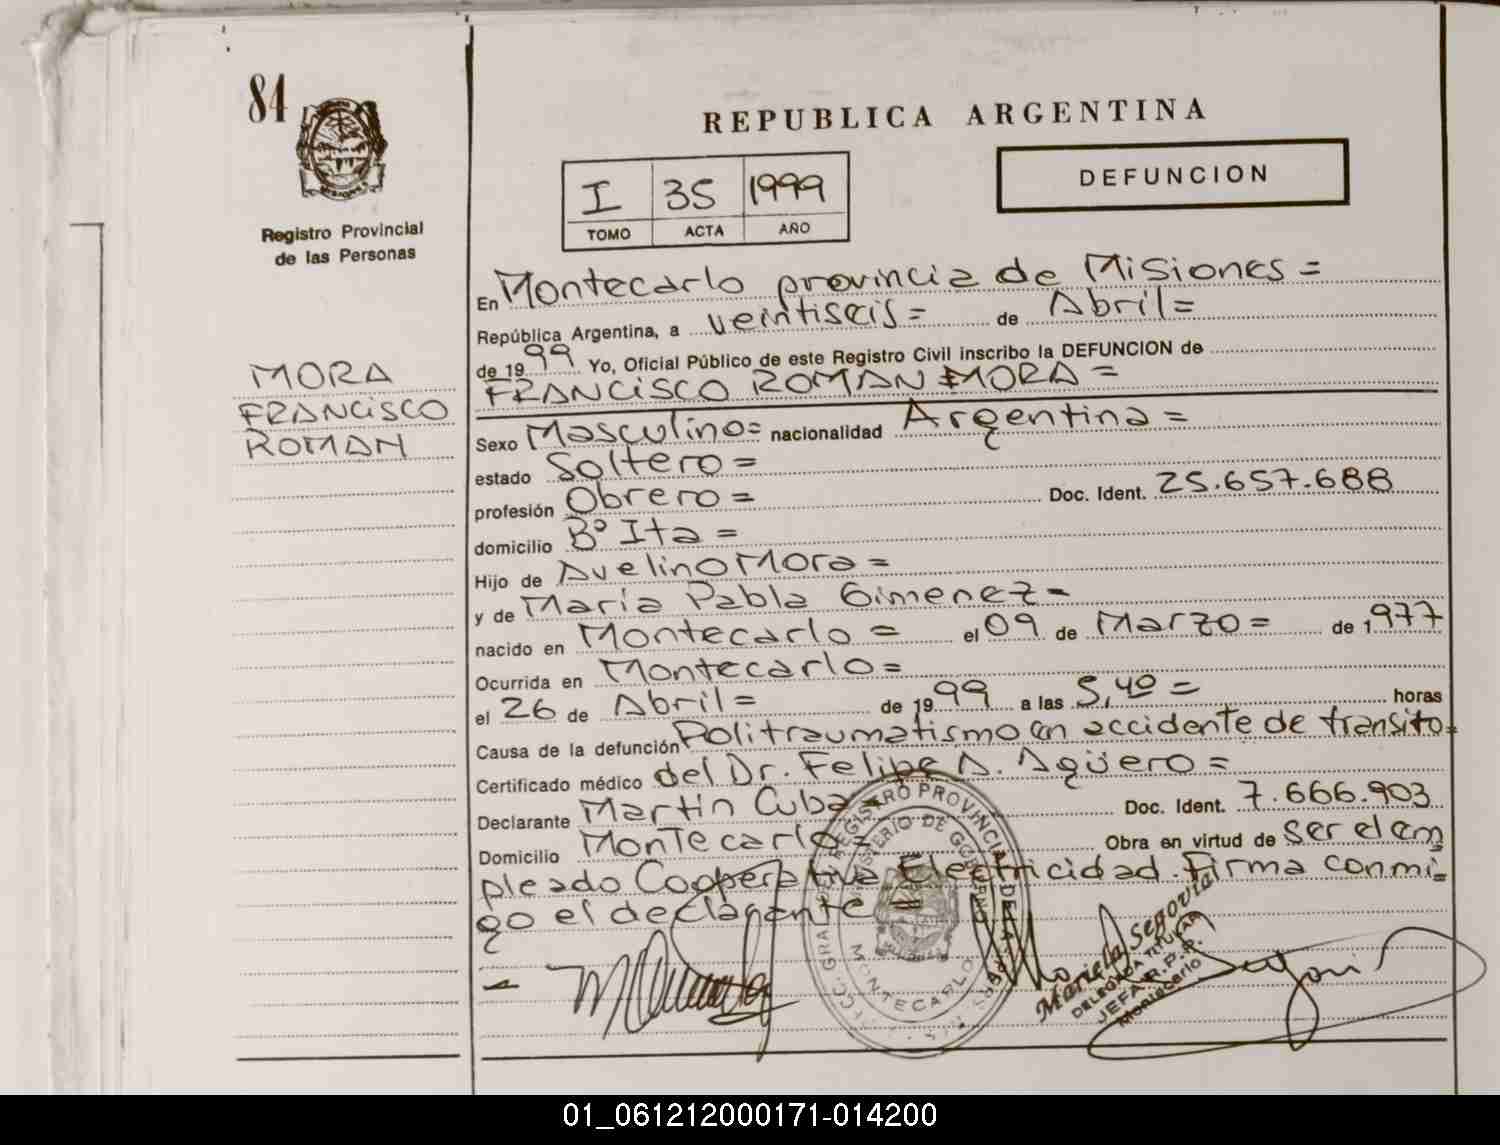 84
REPUBLICA ARGENTINA
I 35 1999
TOMO ACTA AÑO
DEFUNCION
MISIONES
Registro Provincial
de las Personas
MORA
FRANCISCO
ROMAN
En Montecarlo provincia de Misiones =
República Argentina, a veintiseis = de Abril =
de 1999 Yo, Oficial Público de este Registro Civil inscribo la DEFUNCION de
FRANCISCO ROMAN MORA =
Sexo Masculino = nacionalidad Argentina =
estado Soltero =
profesión Obrero = Doc. Ident. 25.657.688
domicilio Bº Ita =
Hijo de Avelino Mora =
y de María Pabla Gimenez =
nacido en Montecarlo = el 09 de Marzo = de 1977
Ocurrida en Montecarlo =
el 26 de Abril = de 1999 a las 5,40 = horas
Causa de la defunción Politraumatismo en accidente de transito =
Certificado médico del Dr. Felipe A. Agüero =
Declarante Martin Cuba = Doc. Ident. 7.666.903
Domicilio Montecarlo = Obra en virtud de ser el em
pleado Cooperativa Electricidad. Firma conmi=
go el declarante =
REGISTRO PROVINCIAL DE LAS
MINISTERIO DE GOBIERNO
MONTECARLO
Mariela Segovia
DELEGADA TITULAR
JEFA R.P.P.
Montecarlo
01_061212000171-014200